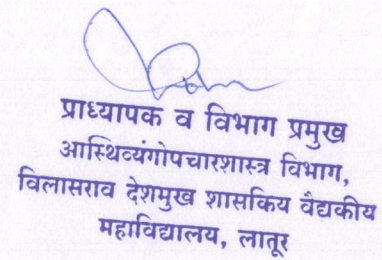 प्राध्यापक व विभाग प्रमुख
आस्थिव्यंगोपचारशास्त्र विभाग,
विलासराव देशमुख शासकिय वैद्यकीय
महाविद्यालय, लातूर